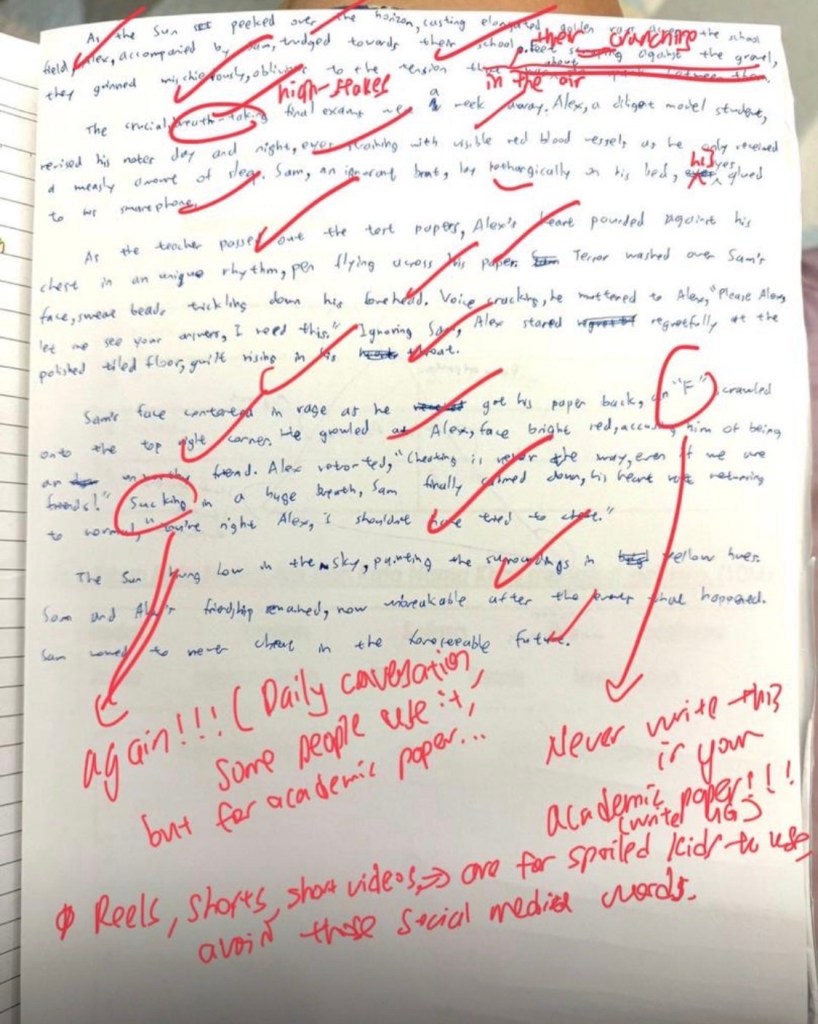 As the Sun peeked over the horizon, casting elongated golden rays across the school
their crunching
field, Alex, accompanied by Sam, trudged towards their school, feet against the gravel,
about
they grinned mischievously, oblivious to the tension that between them.
high-stakes in the air
The crucial breath-taking final exams were a week away. Alex, a diligent model student,
revised his notes day and night, eyes with visible red blood vessels as he only received
his
a measly amount of sleep. Sam, an ignorant brat, lay lethargically on his bed, eyes glued
to his smartphone.
As the teacher passed out the test papers, Alex's heart pounded against his
chest in an unique rhythm, pen flying across his paper. Terror washed over Sam's
face, sweat beads trickling down his forehead. Voice cracking, he muttered to Alex, "Please Alex,
let me see your answers, I need this." Ignoring Sam, Alex stared regretfully at the
polished tiled floor, guilt rising in his throat.
Sam's face contorted in rage as he got his paper back, an "F" scrawled
onto the top right corner. He growled at Alex, face bright red, accusing him of being
an friend. Alex retorted, "Cheating is never the way, even if we are
friends!" Sucking in a huge breath, Sam finally calmed down, his heart rate returning
to normal, "You're right Alex, i shouldn't have tried to cheat."
The Sun hung low in the sky, painting the surroundings in yellow hues.
Sam and Alex's friendship remained, now unbreakable after the events that happened.
Sam vowed to never cheat in the foreseeable future.
again!!! (Daily conversation,
some people use it,
but for academic paper...
Never write this
in your
academic paper!!!
(write UG)
Reels, shorts, short videos, => are for spoiled kids to use,
avoid those social media words.